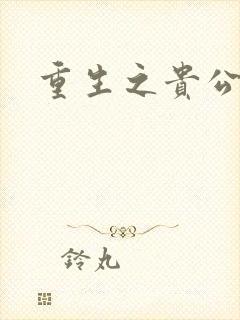 重生之貴公
鈴丸